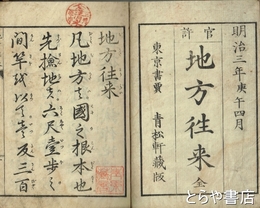 明治三年庚午四月
官許
地方往来 全
東京書賈 青松軒蔵版
地方往来
凡地方者國之根本也
先撿地者六尺壹歩
間竿を以て壹反三百
とらや書房